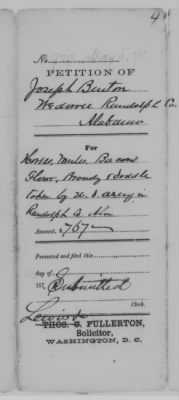 4
No.
PETITION OF
Joseph Burton
Wedowee Randolph Co.
Alabama
For
Horses, Mules, Bacon
Flour, Brandy & Saddle
taken by U. S. army in
Randolph Co Ala
Amount, $767
Presented and filed this
day of
187 , Submitted
Clerk.
Lewis &
THOS. C. FULLERTON,
Solicitor,
WASHINGTON, D. C.